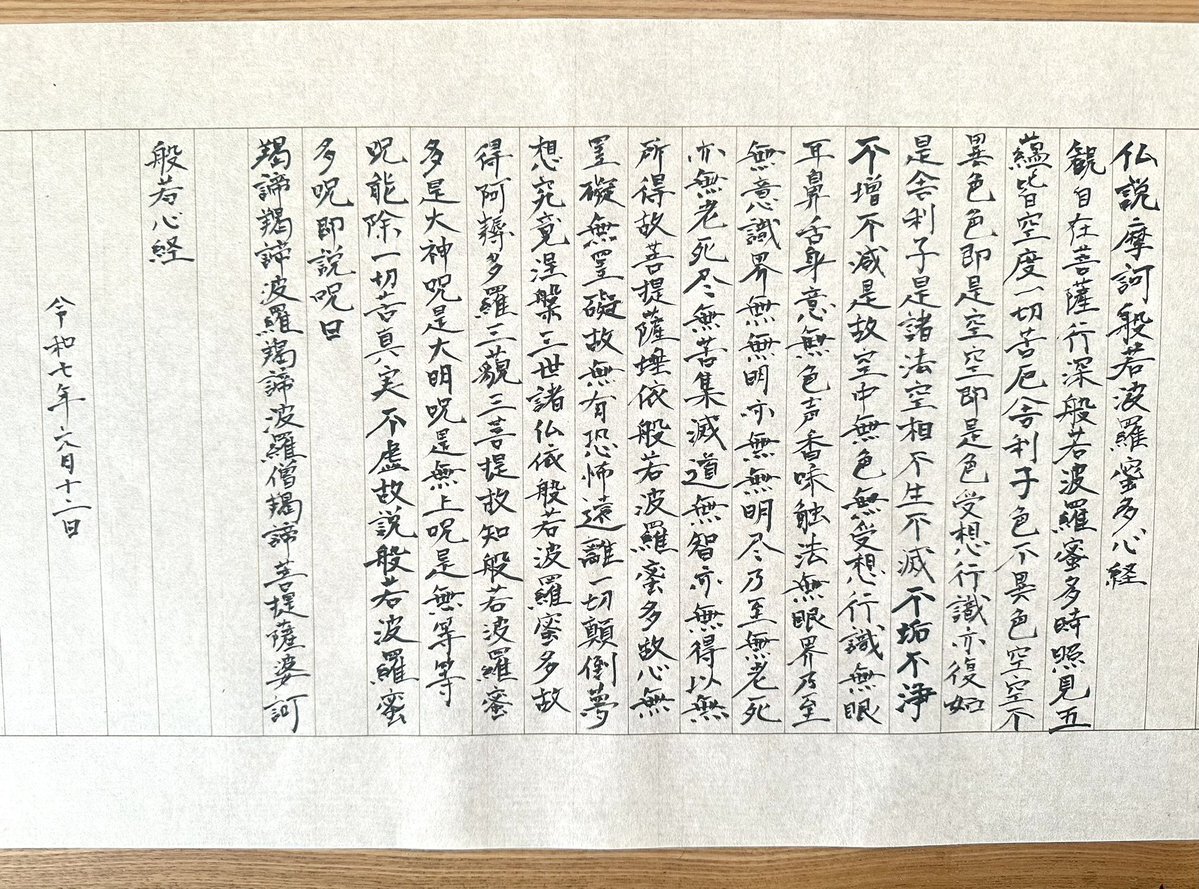 仏説摩訶般若波羅蜜多心経
観自在菩薩行深般若波羅蜜多時照見五
蘊皆空度一切苦厄舎利子色不異色空空不
異色色即是空空即是色受想行識亦復如
是舎利子是諸法空相不生不滅不垢不浄
不増不減是故空中無色無受想行識無眼
耳鼻舌身意無色声香味触法無眼界乃至
無意識界無無明亦無無明尽乃至無老死
亦無老死尽無苦集滅道無智亦無得以無
所得故菩提薩埵依般若波羅蜜多故心無
罣礙無罣礙故無有恐怖遠離一切顛倒夢
想究竟涅槃三世諸仏依般若波羅蜜多故
得阿耨多羅三藐三菩提故知般若波羅蜜
多是大神呪是大明呪是無上呪是無等等
呪能除一切苦真実不虚故説般若波羅蜜
多呪即説呪曰
羯諦羯諦波羅羯諦波羅僧羯諦菩提薩婆訶
般若心経
令和七年六月十二日